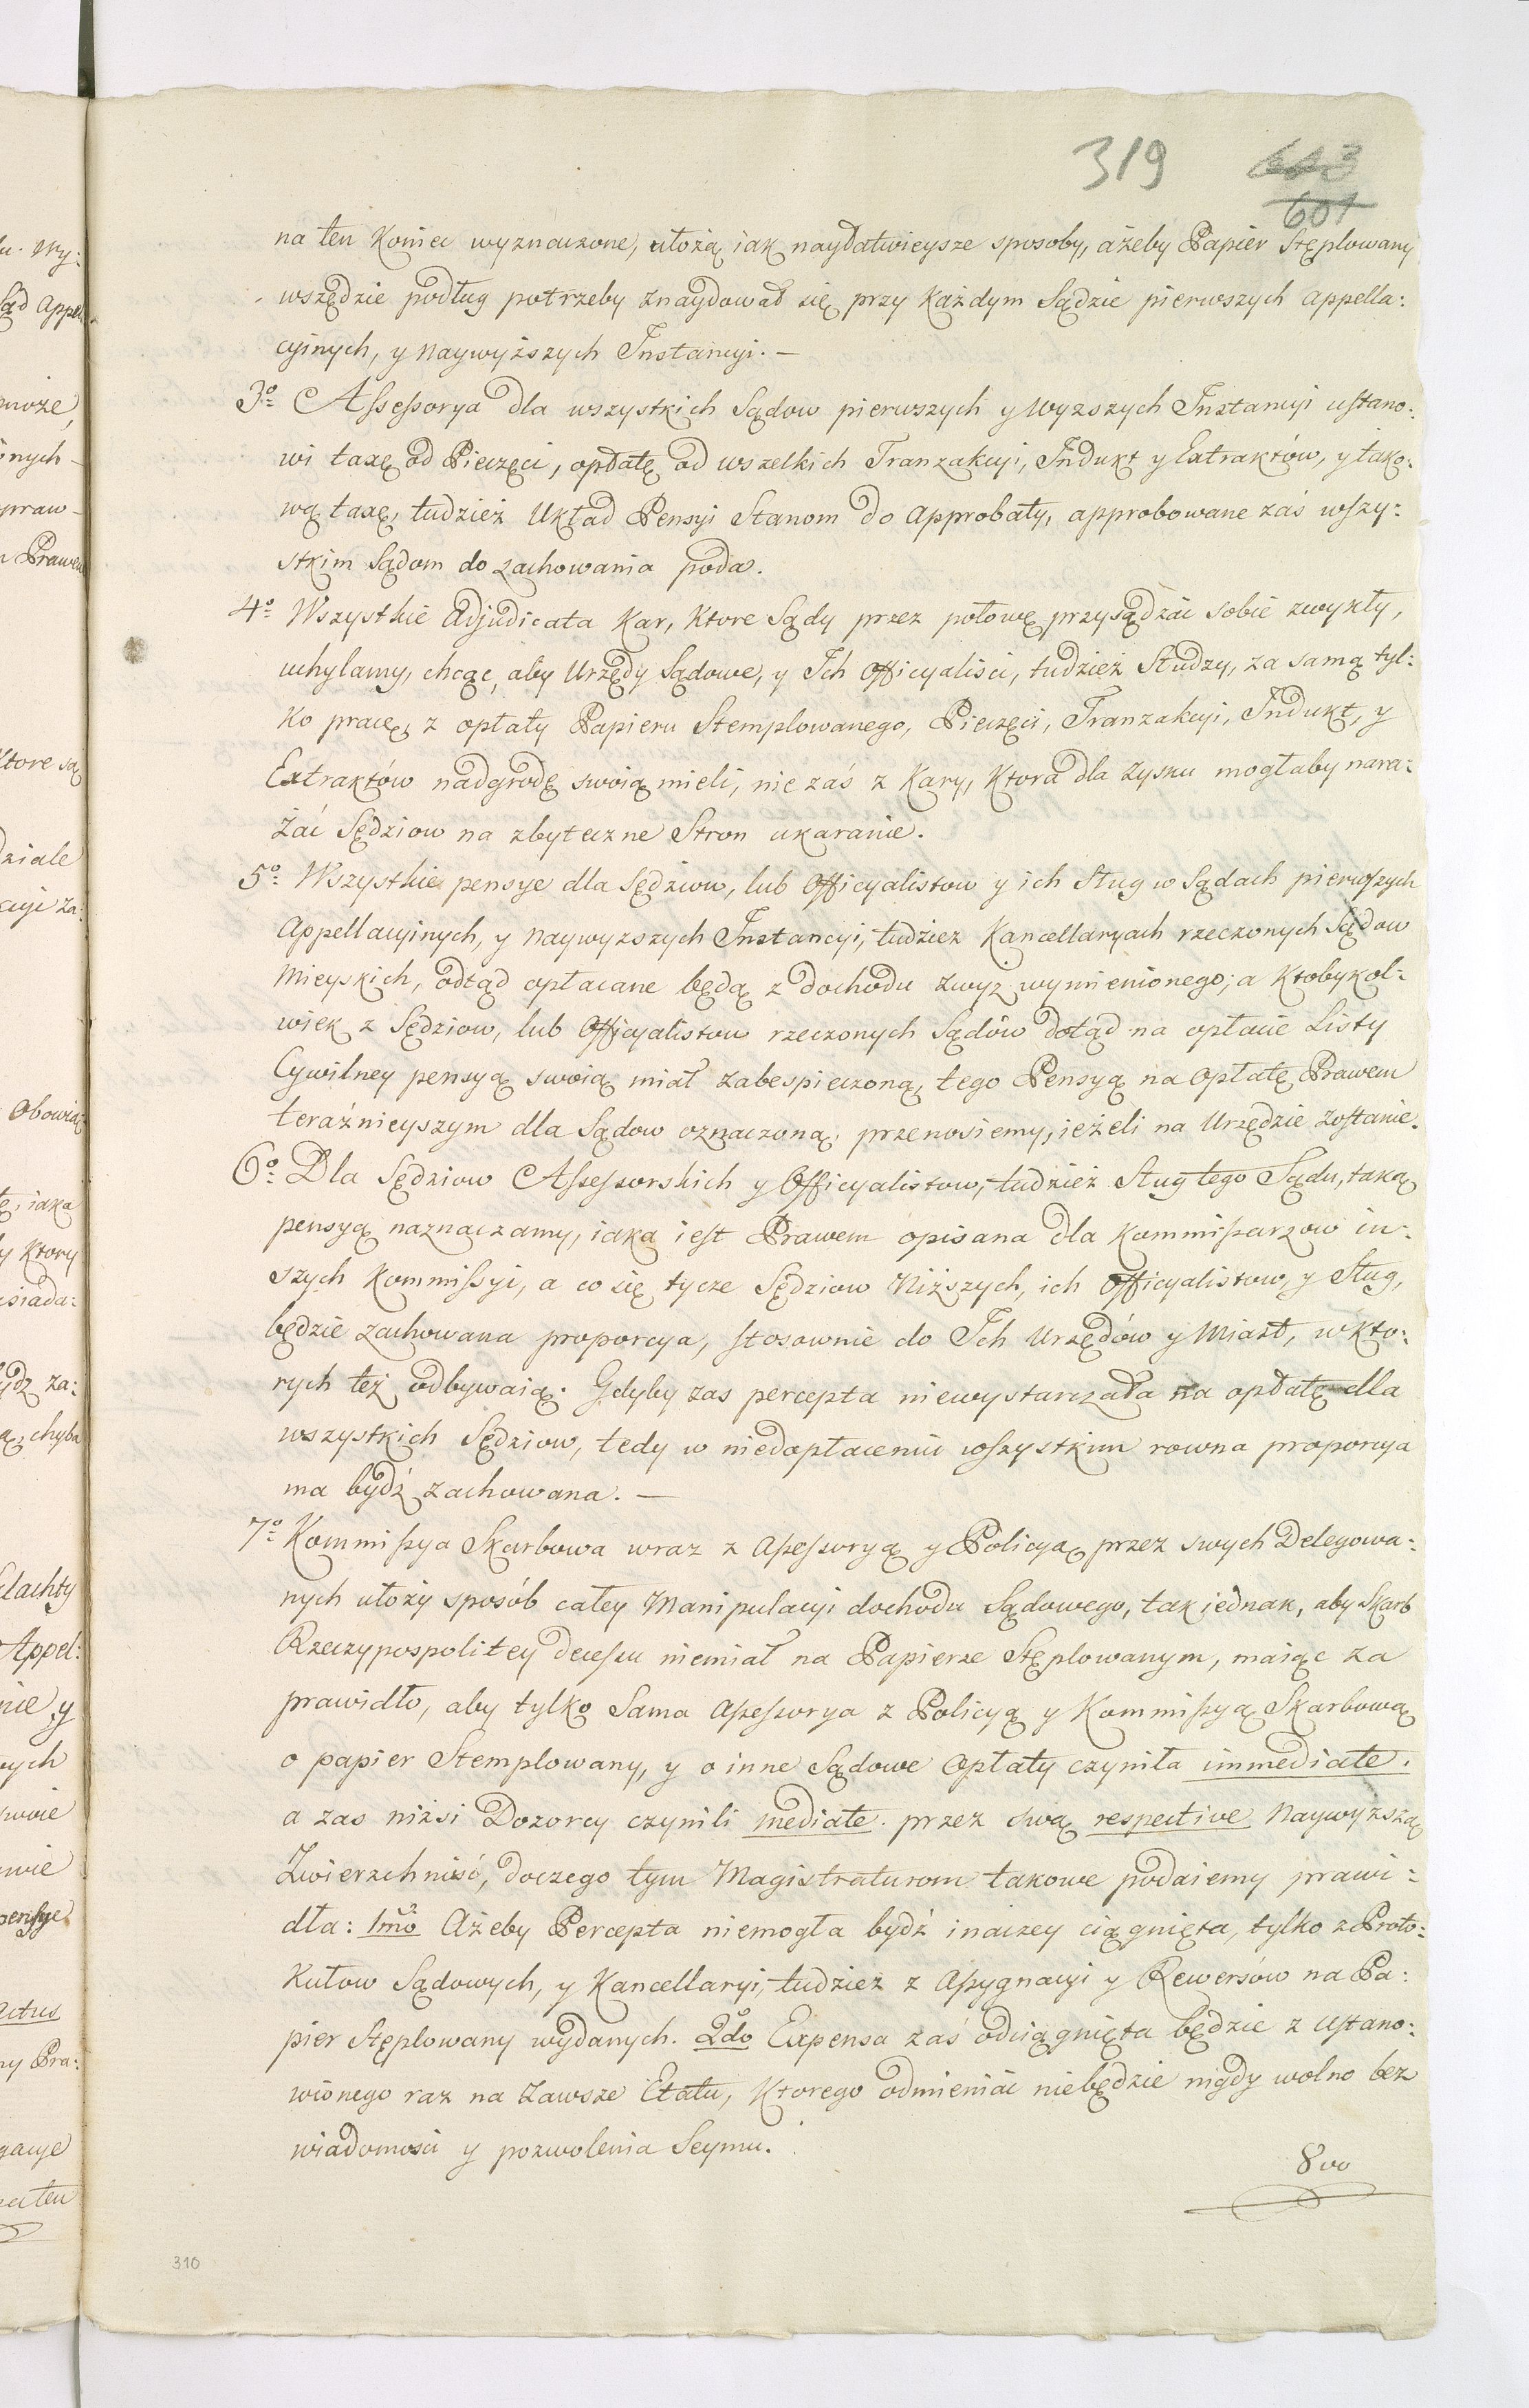 319
603
601
na ten Koniec wyznaczone, ułożą iak naydatwieysze sposoby, ażeby Papier Stęplowany
wszędzie podług potrzeby znaydował się przy każdym Sądzie pierwszych appella:
cyinych, y naywyższych Instancyi. —
3o Assessorya dla wszystkich Sądow pierwszych y wyzszych Instancyi ustano:
wi taxę od Pieczęci, opłatę od wszelkich Tranzakcyi, Indukt y Extraktów, y tako:
wą taxę, tudzież Układ Pensyi Stanom do Approbaty, approbowane zaś wszy:
stkim Sądom do zachowania poda.
4o Wszystkie Adjudicata Kar, Ktore Sądy przez połowę przysądzać sobie zwykły,
uchylamy, chcąc, aby Urzędy Sądowe, y Ich Officyaliści, tudzież Studzy, za samą tyl:
ko pracę, z opłaty Papieru Stemplowanego, Pieczęci, Tranzakcyi, Indukt, y
Extraktów nadgrodę swoią mieli, nie zaś z Kary, Ktora dla zysku mogłaby nara:
żać Sędziow na zbyteczne Stron ukaranie.
5o Wszystkie pensye dla Sędziow, lub Officyalistow y ich Sług w Sądach pierwszych
Appellacyinych, y naywyzszych Instancyi, tudziez Kancellaryach rzeczonych Sądow
Mieyskich, odtąd opłacane będą z dochodu zwyz wymienionego; a Ktobykol:
wiek z Sędziow, lub Officyalistow rzeczonych Sądów dotąd na opłacie Listy
Cywilney pensyą swoią miał zabespieczoną, tego Pensyą na Opłatę Prawem
teraźnieyszym dla Sądow oznaczoną, przenosiemy, ieżeli na Urzędzie zostanie.
6o Dla Sędziow Assessorskich y Officyalistow, tudzież Sług tego Sądu, taką
pensyą naznaczamy, iaka iest Prawem opisana dla Kommissarzow in:
szych Kommissyi, a co się tycze Sędziow Niższych, ich Officyalistow, y Sług,
będzie zachowana proporcya, stosownie do Ich Urzędów y Miast, w kto:
rych też odbywaią. Gdyby zas percepta niewystarczała na opłatę dla
wszystkich Sędziow, tedy w niedopłaceniu wszystkim rowna proporcya
ma bydź zachowana. —
7o Kommissya Skarbowa wraz z Assessoryą y Policyą, przez swych Delegowa:
nych ułoży sposób całey Manipulacyi dochodu Sądowego, tak jednak, aby Skarb
Rzeczypospolitey decessu niemiał na Papierze Stęplowanym, maiąc za
prawidło, aby tylko Sama Assessorya z Policyą y Kommissyą Skarbową
o papier Stemplowany, y o inne Sądowe Opłaty czyniła immediate.
a zas niżsi Dozorcy czynili mediate. przez swą respective Naywyższą
Zwierzchność, do czego tym Magistraturom takowe podaiemy prawi:
dła: 1mo Ażeby Percepta niemogła bydź inaczey ciągnięta, tylko z Proto:
kułow Sądowych, y Kancellaryi, tudziez z Assygnacyi y Rewersów na Pa:
pier Stęplowany wydanych. 2do Expensa zaś odciągnięta będzie z ustano:
wionego raz na zawsze Etatu, Ktorego odmieniać niebędzie nigdy wolno bez
wiadomości y pozwolenia Seymu.
8vo
310